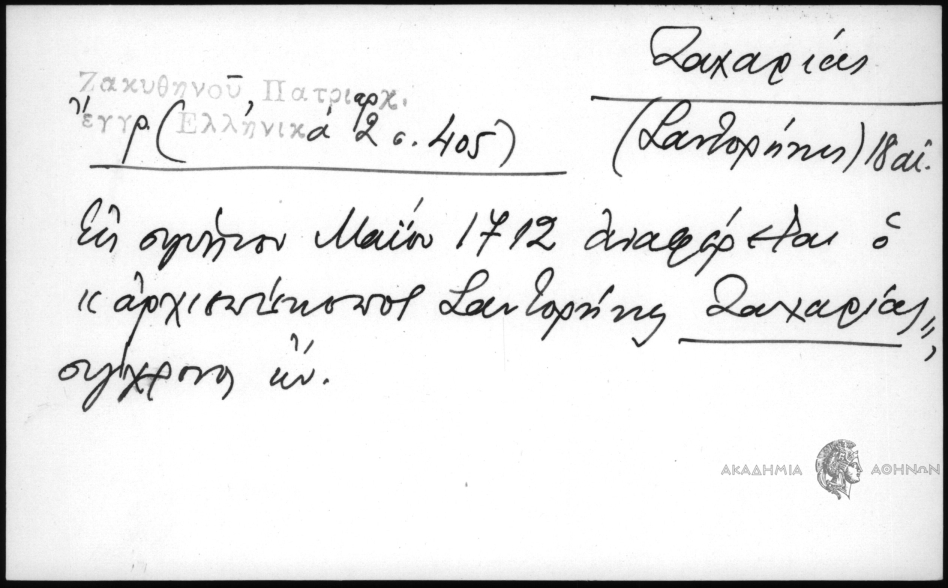 Ζαχαρίας
Ζακυθηνοῦ Πατριαρχ.
ἔγγρ. (Ἑλληνικά 2 σ. 405)
(Σαντορήνης) 18 αἰ.
Εἰς Μαΐου 1712 ἀναφέρεται ὁ
"ἀρχιεπίσκοπος Σαντορήνης Ζαχαρίας",
σύγχρονος ὤν.
ΑΚΑΔΗΜΙΑ ΑΘΗΝΩΝ